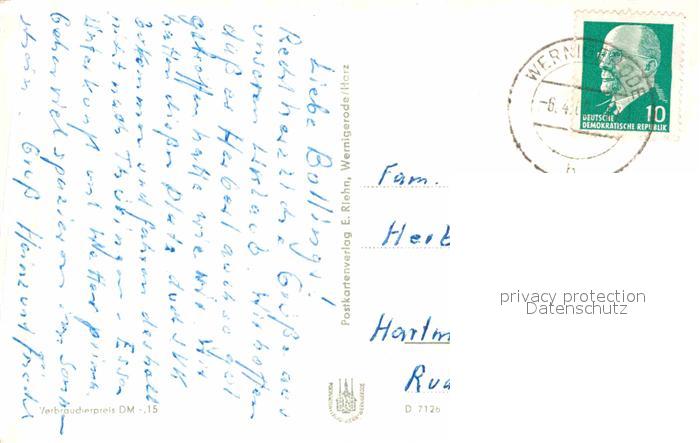 Liebe Bollings!
Recht herzliche Grüße aus
unserem Urlaub. Wir hoffen
daß es Herbert auch so gut
getroffen hatte wie wir. Wir
hatten diesen Platz durch
bekommen und fahren deshalb
nicht nach Thüringen. Essen
Unterkunft und Wetter prima.
Gehen viel spazieren
schön. Gruß Heinz und
Verbraucherpreis DM -,15
Postkartenverlag E. Riehn, Wernigerode/Harz
D 7126
WERNIGERODE
-6.4.
b
10
DEUTSCHE
DEMOKRATISCHE REPUBLIK
Fam.
Herb
Hartm
Rud
privacy protection
Datenschutz